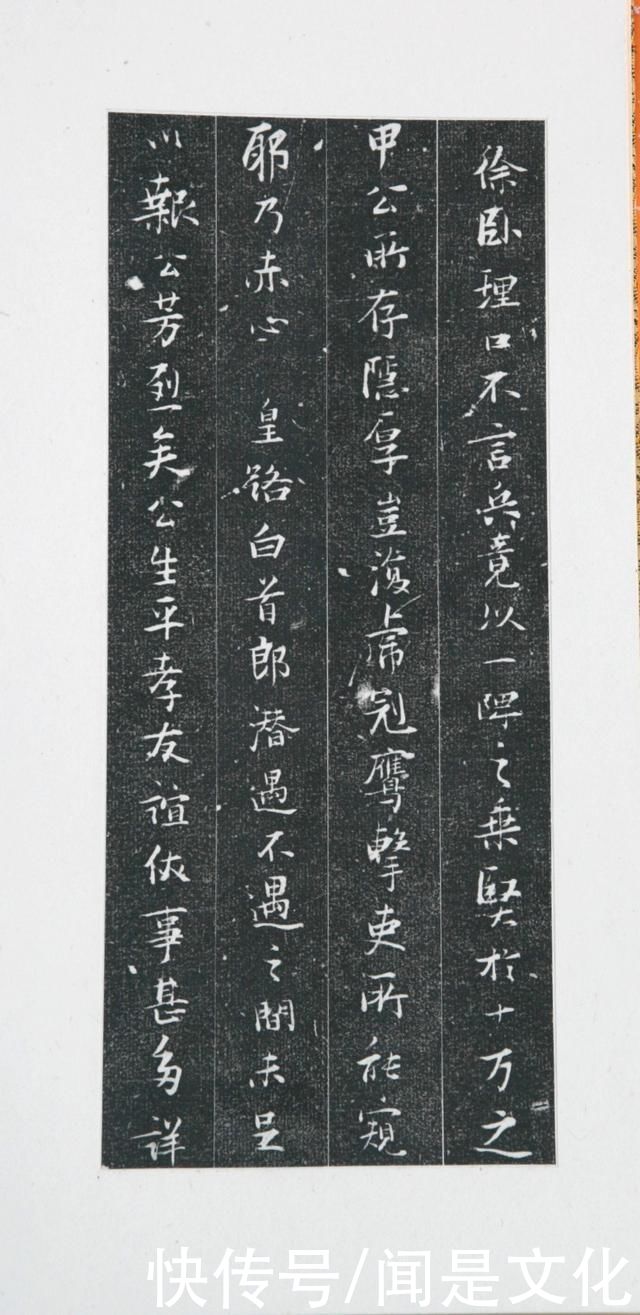 徐臥理口不言兵竟以一障之乗賢於十万之
甲公所存隱厚豈復虎冠鷹擊吏所能窺
耶乃赤心 皇路白首郎潛遇不遇之間未足
以公芳烈矣公生平孝友誼俠事甚多詳
快传号/闻是文化